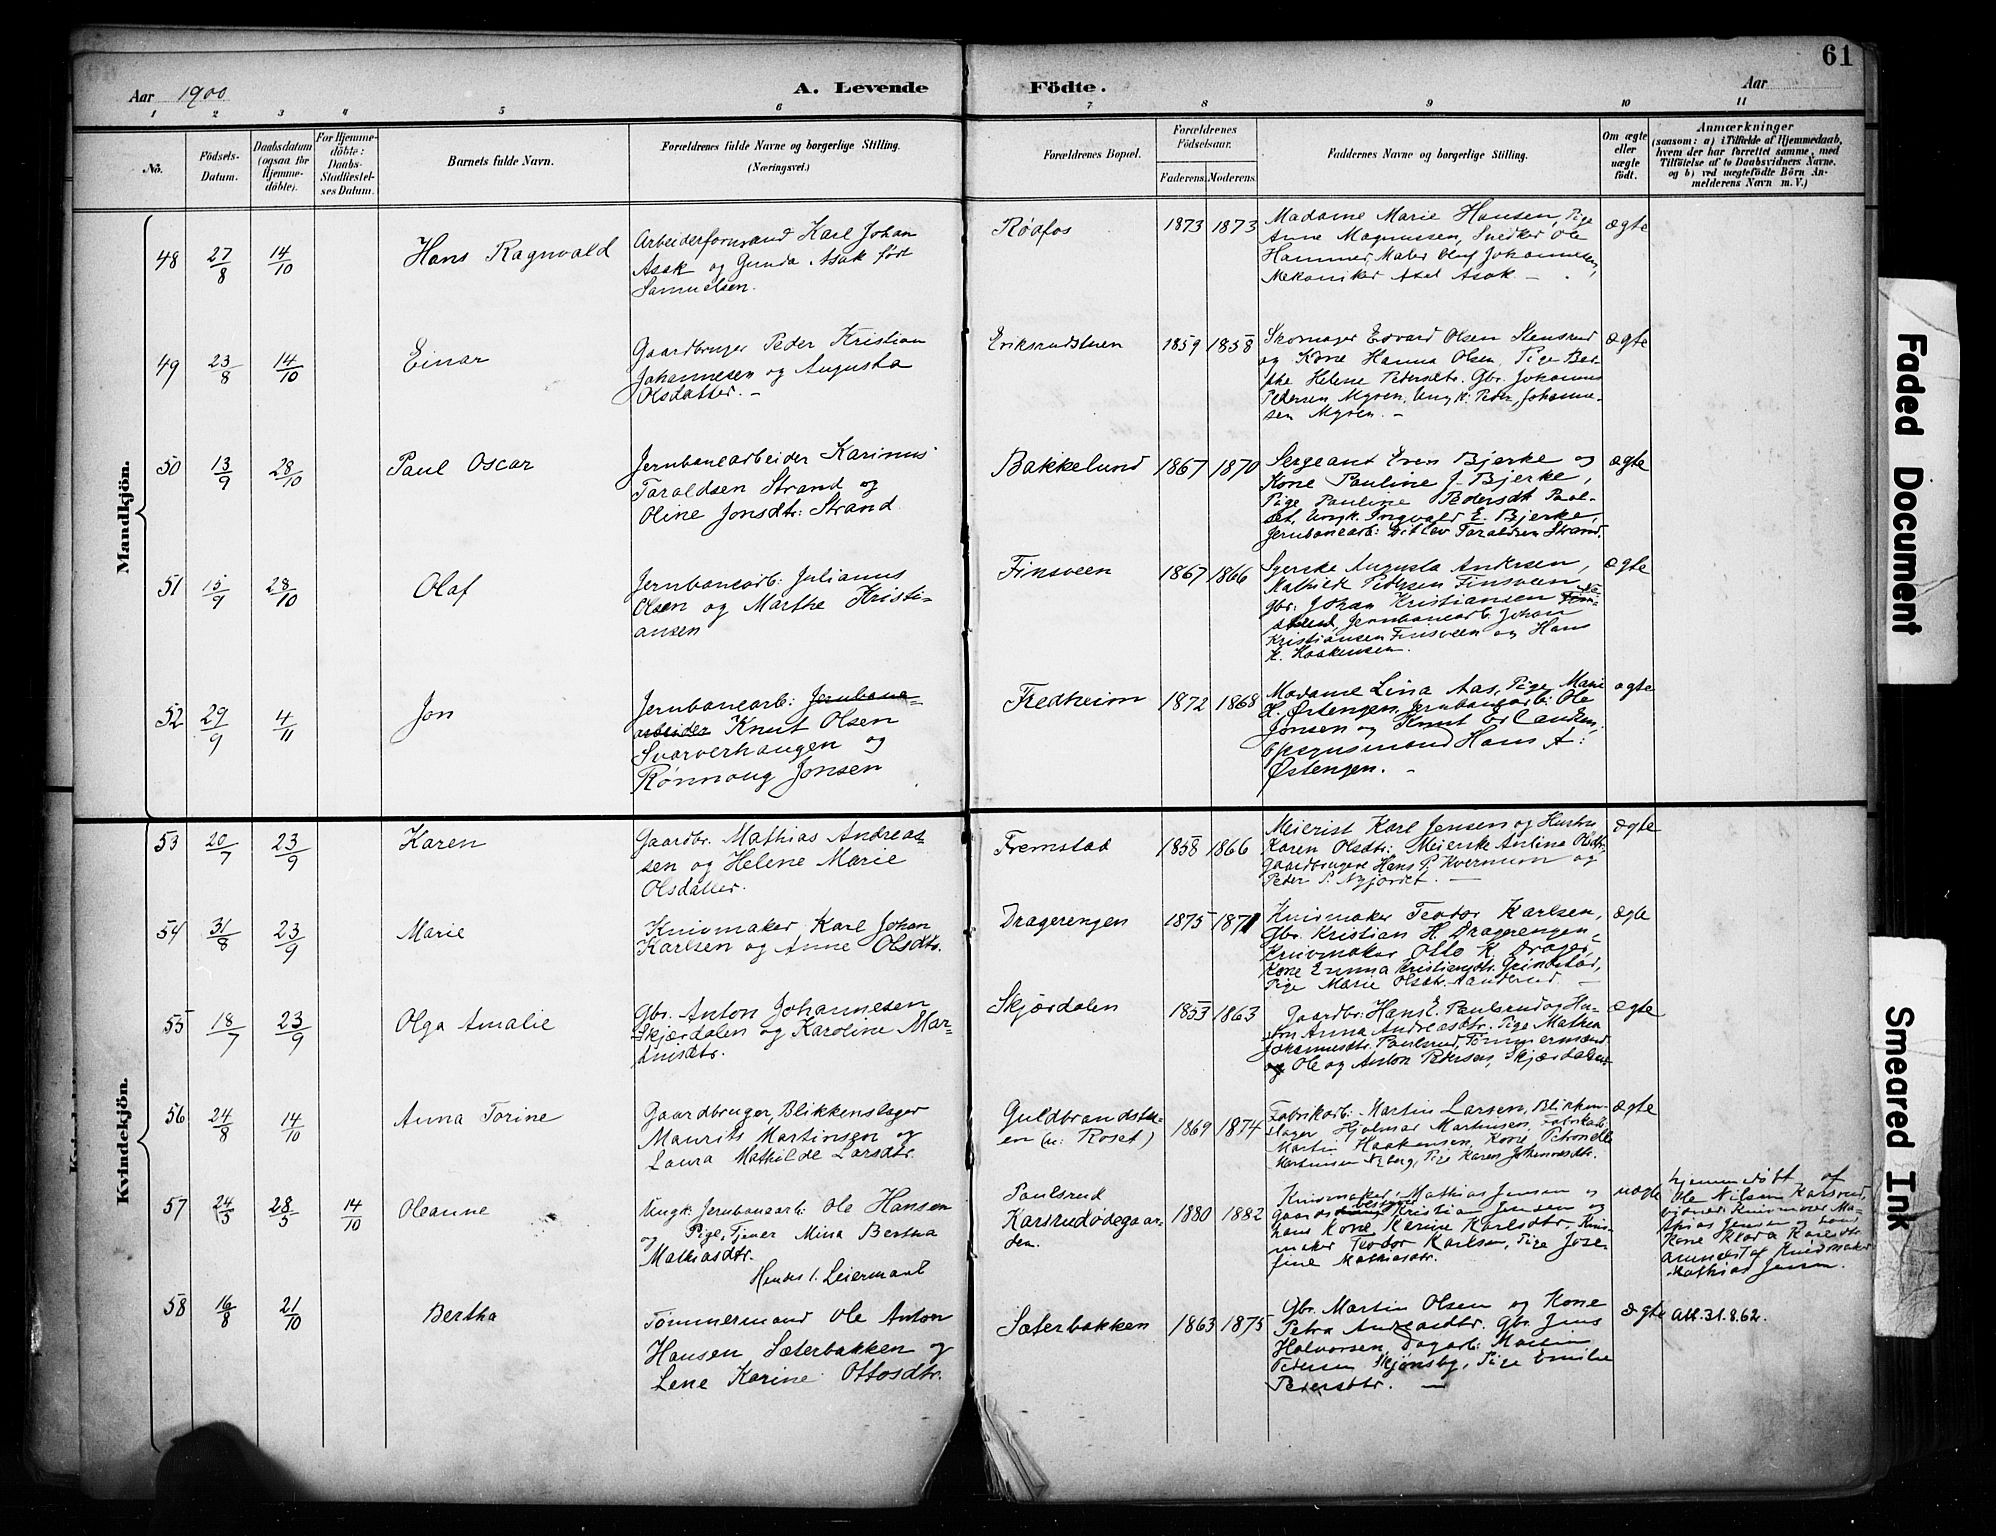 61
Aar 1900
A. Levende
Födte.
Aar
1 2 3 4 5 6 7 8 9 10 11
No.
Födsels-
Datum.
Daabsdatum
(ogsaa for
Hjemme-
döbte).
For Hjemme-
döbte:
Daabs-
Stadfæstel-
ses Datum.
Barnets fulde Navn.
Forældrenes fulde Navne og borgerlige Stilling.
(Næringsvei.)
Forældrenes Bopæl.
Forældrenes
Födselsaar.
Faderens. Moderens.
Faddernes Navne og borgerlige Stilling.
Om ægte
eller
uægte
födt.
Anmærkninger
(saasom: a) i Tilfælde af Hjemmedaab,
hvem der har forrettet samme, med
Tilföielse af to Daabsvidners Navne.
og b) ved uægtefödte Börn An-
melderens Navn m. V.)
Mandkjön.
48 27/8 14/10 Hans Ragnvald
Arbeiderformand Karl Johan
Asak og Gunda Asak født
Samuelsen.
Rødfos 1873 1873
Madame Marie Hansen, Pige
Anne Magnussen, Snedker Ole
Hammer, Maler Oluf Johannesen,
Mekaniker Axel Asak —
ægte
49 23/8 14/10 Einar
Gaardbruger Peder Kristian
Johannesen og Augusta
Olsdatter. —
Eriksrudstuen 1859 1858
Skomager Edvard Olsen Stensrud
og Kone Hanna Olsen, Pige Ber-
the Helene Pedersdtr. Gbr. Johannes
Pedersen Myren, Ungk. Peder Johanne-
sen Myren. —
ægte
50 13/9 28/10 Paul Oscar
Jernbanearbeider Karinus
Taraldsen Strand og
Oline Jonsdtr: Strand
Bakkelund 1867 1870
Sergeant Even Bjerke og
Kone Pauline J. Bjerke,
Pige Pauline Pedersdt Paul-
set, Ungk. Ingvald E. Bjerke,
Jernbanearb: Ditlev Taraldsen Strand.
ægte
51 15/9 28/10 Olaf
Jernbanearb: Julianus
Olsen og Marthe Kristi-
ansen
Finsveen 1867 1866
Syerske Augusta Andersen,
Mathilde Pedersen Finsveen
gbr: Johan Kristiansen
Jernbanearb. Johan
Kristiansen Finsveen og Hans
K. Haakensen.
ægte
52 29/9 4/11 Jon
Jernbanearb: Jernbane-
arbeider Knut Olsen
Svarverhaugen og
Rønnoug Jonsen
Fredheim 1872 1868
Madame Lina Aas, Pige Marie
H. Østengen, Jernbanearb: Ole
Jonsen og Knut
Hans A:
Østengen. —
ægte
Kvindekjön.
53 20/7 23/9 Karen
Gaardbr. Mathias Andreas-
sen og Helene Marie
Olsdatter.
Fremstad 1858 1866
Meierist Karl Jensen og Hustru
Karen Olsdtr: Meierske Antina Olsdtr.
Gaardbrugere Hans P. Kvernum og
Peder P. Nyjordet. —
ægte
54 31/8 23/9 Marie
Knivmaker Karl Johan
Karlsen og Anne Olsdtr.
Dragerengen 1875 1871
Knivmaker Teodor Karlsen,
Gbr. Kristian H. Dragerengen,
Knivmaker Otto K. Drager,
Kone Emma Kristiansdtr.
Pige Marie Olsdtr.
ægte
55 18/7 23/9 Olga Amalie
Gbr. Anton Johannesen
Skjærdalen og Karoline Mar-
tinsdtr.
Skjærdalen 1853 1863
Gaardbr: Hans E. Paulsrud og Hu-
stru Anna Andreasdtr. Pige Mathea
Johannesdtr. Paulsrud, Tømmermænd
Ole og Anton Pedersen, Skjærdalen
ægte
56 24/8 14/10 Anna Torine
Gaardbruger, Blikkenslager
Maurits Martinsen og
Laura Mathilde Larsdtr.
Guldbrandstu-
en (u: Roset) 1869 1874
Fabrikarb: Martin Larsen, Blikken-
slager Hjalmar Martinsen, Fabrikarb.
Martin Haakensen, Kone Petronelle
Martinsen Nyberg, Pige Karen Johannesdtr.
ægte
57 24/5 28/5 14/10 Oleanne
Ungk. Jernbanearb: Ole Hansen
og Pige, Tjener Mina Bertha
Mathiasdtr.
Hendes 1. Leiermaal
Paulsrud
Karlsrudødegaar-
den. 1880 1882
Knivmaker Mathias Jensen og
Gaardbestyrer Kristian Jensen og
hans Kone Karine Karlsdtr, Kniv-
maker Teodor Karlsen, Pige Jose-
fine Mathiasdtr.
uægte
hjemmedøbt af
Ole Nilsen Karlsrud,
vidner: Knivmaker Ma-
thias Jensen og
Kone Klara Karlsdtr.
anmeldt af Knivmaker
Mathias Jensen.
58 16/8 21/10 Bertha
Tømmermand Ole Anton
Hansen Sæterbakken og
Lene Karine Ottosdtr.
Sæterbakken 1863 1875
Gbr. Martin Olsen og Kone
Petra Andreasdtr. Gbr. Jens
Halvorsen, Dagarb: Martin
Pedersen Skjønsby, Pige Emilie
Pedersdtr. —
ægte
Att. 31.8.62.
Faded Document
Smeared Ink